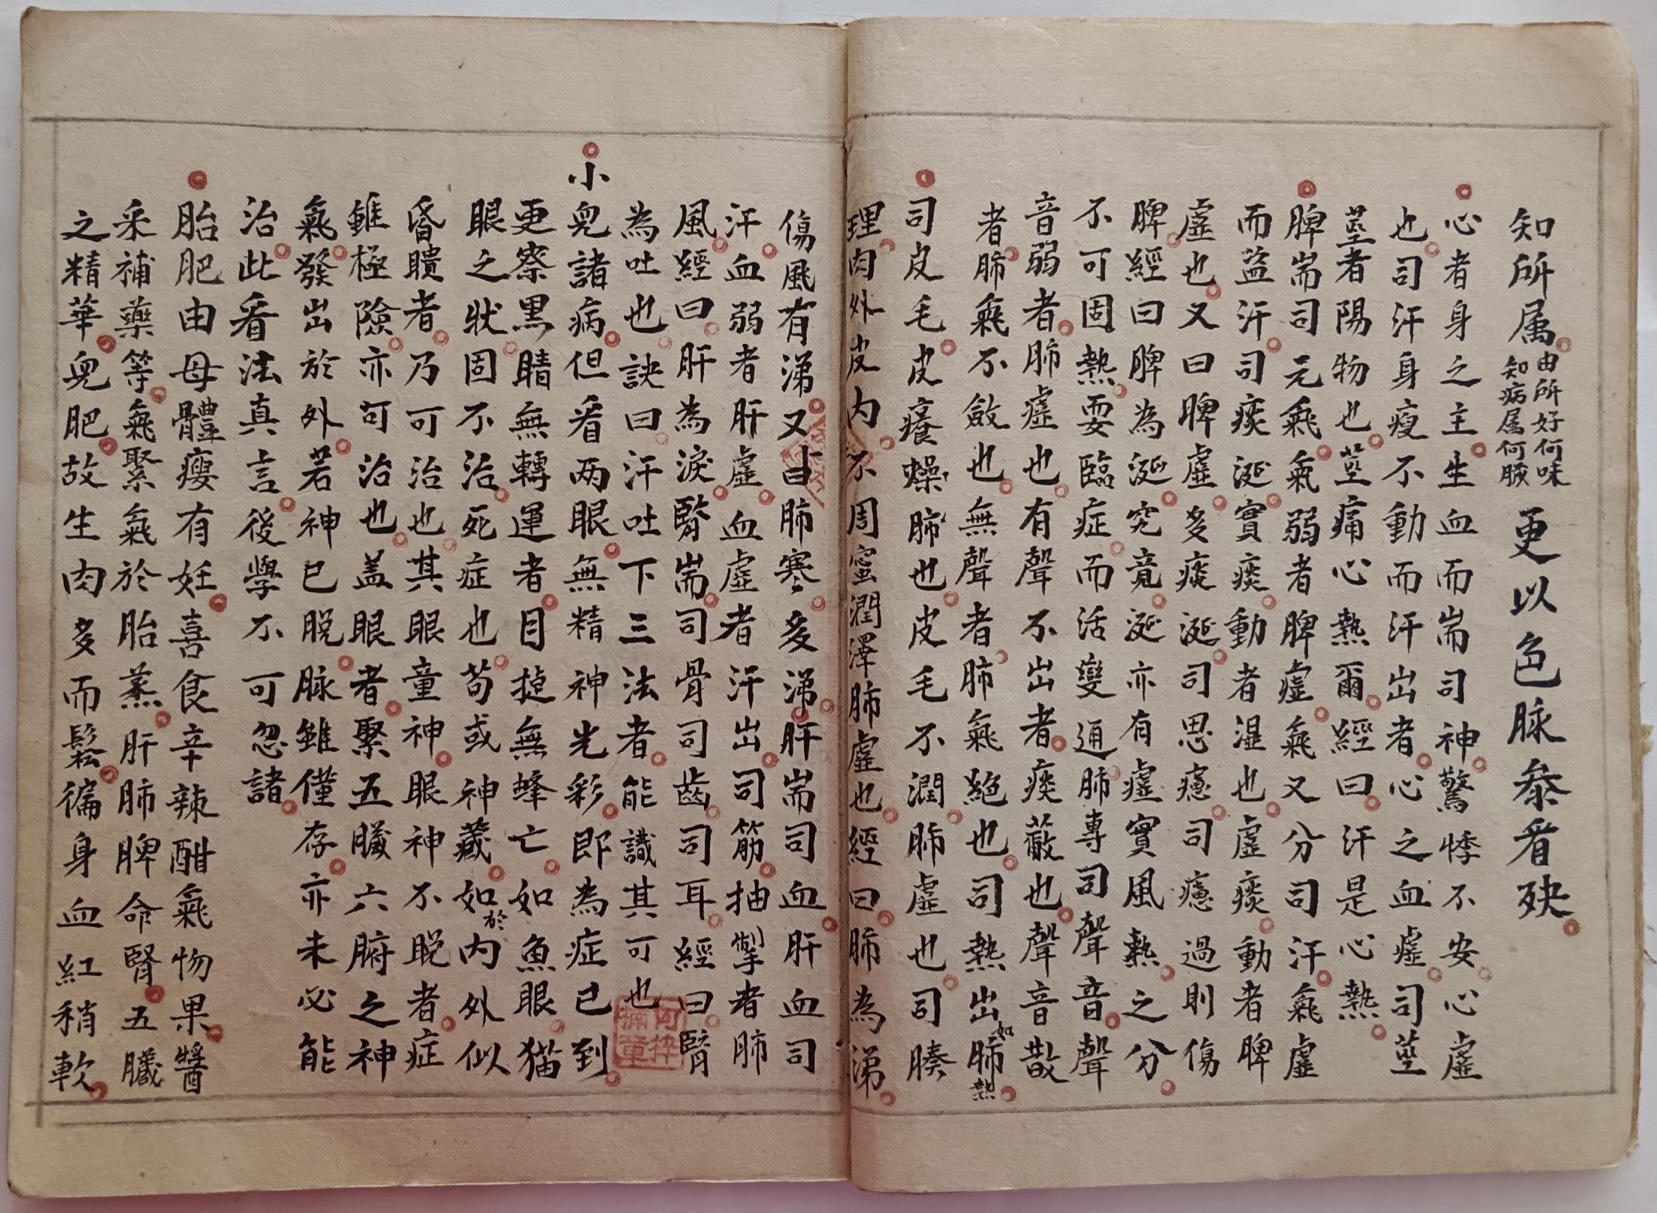 知所属由所好何味知病属何臓更以色脉叅看殃
心者身之主生血而耑司神驚悸不安心虛
也司汗身瘦不動而汗出者心之血虛司莖
莖者陽物也莖痛心熱爾經曰汗是心熱
脾耑司元氣氣弱者脾虛氣又分司汗氣虛
而盗汗司痰涎實痰動者湿也虛痰動者脾
虛也又曰脾虛多痰涎司思慮司慮過則傷
脾經曰脾為涎究竟涎亦有虛實風熱之分
不可固熱要臨症而活變通肺專司聲音聲
音弱者肺虛也有聲不出者痰蔽也聲音散
者肺氣不斂也無聲者肺氣絕也司熱出如肺熱
司皮毛皮癢燥肺也皮毛不潤肺虛也司腠
理肉外皮内不周蜜潤澤肺虛也經曰肺為涕
傷風有涕又由肺寒多涕肝耑司血肝血司
汗血弱者肝虛血虛者汗出司筋抽掣者肺
風經曰肝為淚腎耑司骨司齒司耳經曰腎
為吐也訣曰汗吐下三法者能識其可也
小兒諸病但看两眼無精神光彩即為症已到
更察黒睛無轉運者目㨄無蜂亡如魚眼猫
眼之狀固不治死症也苟或神藏如於内外似
昏瞶者乃可治也其眼童神眼神不脫者症
雖極險亦可治也盖眼者聚五臟六腑之神
氣發出於外若神已脫脉雖僅存亦未必能
治此看法真言後學不可忽諸
胎肥由母體癭有妊喜食辛辣酣氣物果醬
采補藥等氣緊氣於胎蒸肝肺脾命腎五臟
之精華兒肥故生肉多而鬆徧身血紅稍軟